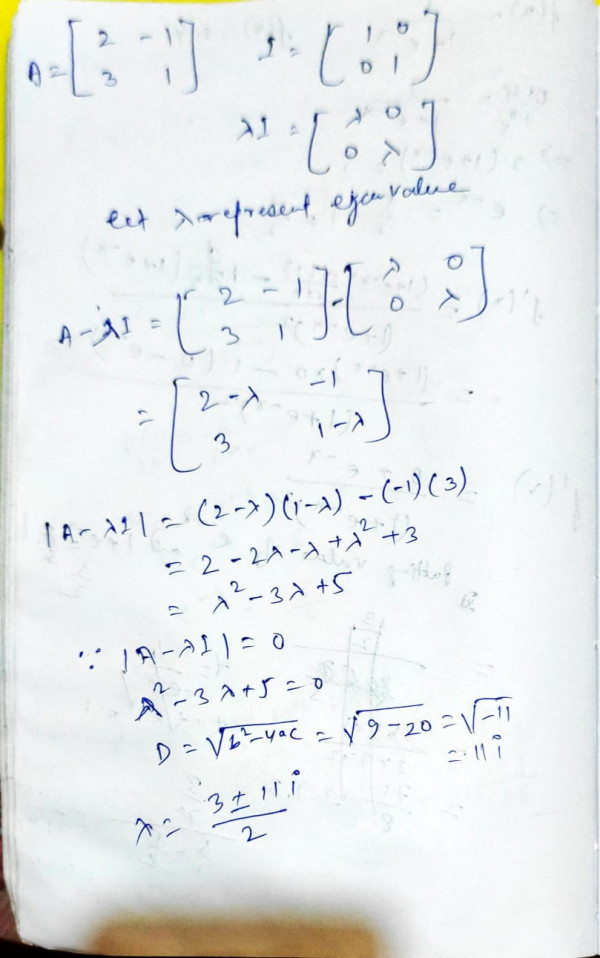 A = [ 2 -1 ] I = [ 1 0 ]
3 1 0 1
λI = [ λ 0 ]
0 λ
let λ represent eigenvalue
A - λI = [ 2 -1 ] - [ λ 0 ]
3 1 0 λ
= [ 2-λ -1 ]
3 1-λ
|A - λI| = (2-λ)(1-λ) - (-1)(3)
= 2 - 2λ - λ + λ² + 3
= λ² - 3λ + 5
∵ |A - λI| = 0
λ² - 3λ + 5 = 0
D = √b²-4ac = √9-20 = √-11
= 11 i
λ = 3 ± 11 i
2